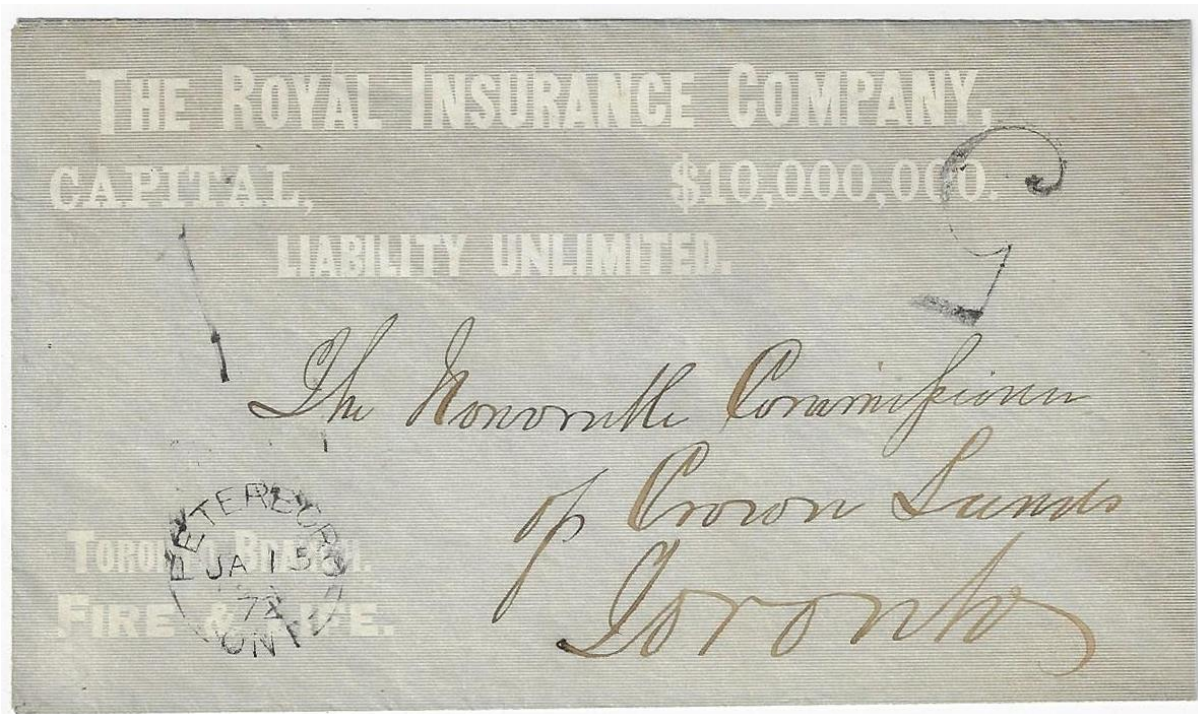 THE ROYAL INSURANCE COMPANY.
CAPITAL, $10,000,000.
LIABILITY UNLIMITED.
5
The Honorable Commissioner
of Crown Lands
Toronto
TORONTO BRANCH.
FIRE & LIFE.
PETERBORO
JA 15
72
ONT